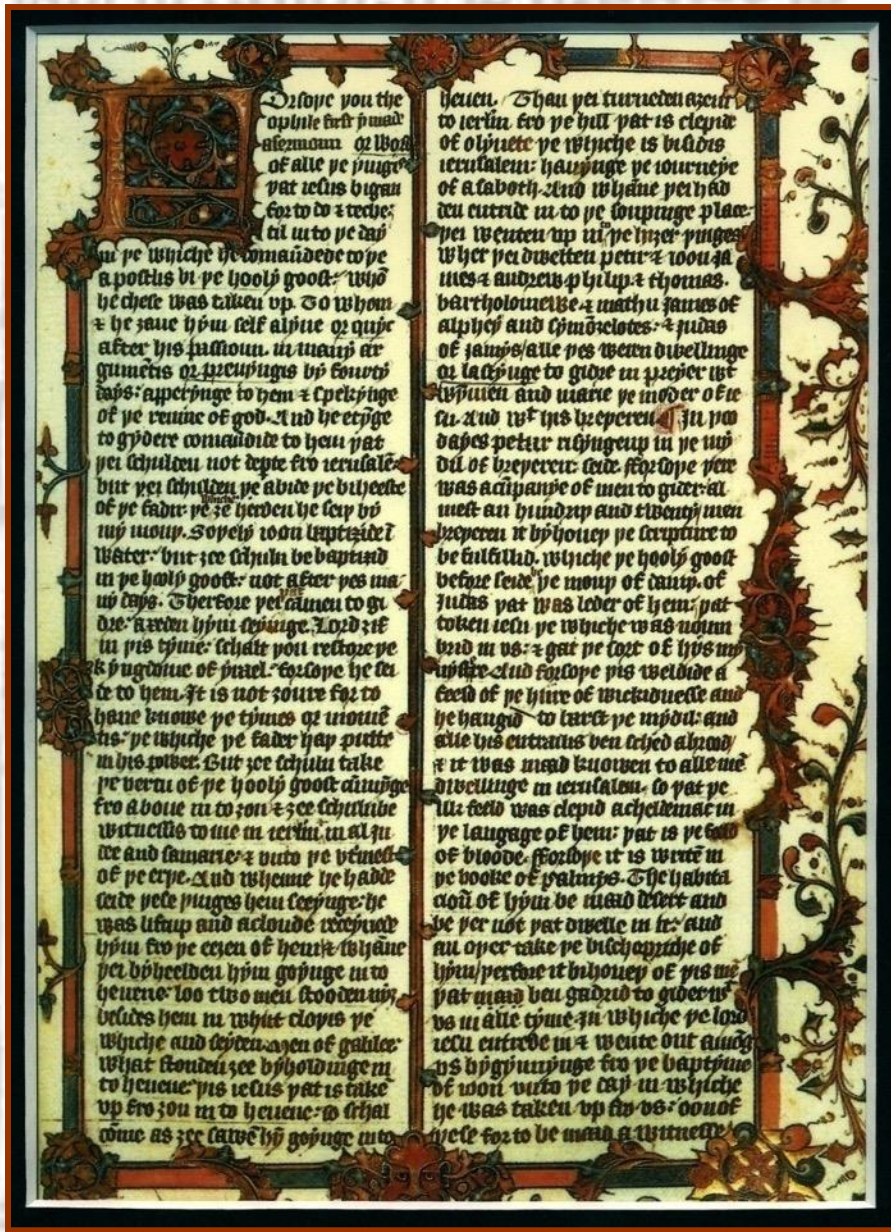 Forsoþe þou the
ophile first ẏ made
a sermoun or word
of alle þe þingis
þat iesus bigan
for to do & teche:
til in to þe daẏ
in þe whiche he comaūdede to þe
apostlis bi þe hoolẏ goost: whō
he chese was taken vp. To whom
& he ȝaue hẏm self alẏue or quẏc
after his passioun. in manẏ ar
gumētis or preuẏngis bẏ fourtẏ
daẏs: apperẏnge to hem & spekẏnge
of þe reume of god. And he etẏge
to gẏdere comaūdide to hem þat
þei schulden not depte fro ierusalē
but þei schulden þe abide þe biheeste
of þe fadir: þe whiche ȝe herden he seiþ bẏ
mẏ mouþ. Soþelẏ ioon baptizide ī
water: but ȝee schuln be baptizid
in þe hoolẏ goost: not after þes ma
nẏ daẏs. Therfore þei camen to gi
dre: axeden hẏm seẏinge. Lord ȝif
in þis tẏme: schalt þou restore þe
kẏngdome of ẏrael. forsoþe he sei
de to hem. It is not ȝoure for to
haue knowe þe tẏmes or momē
tis: þe whiche þe fader haþ putte
in his power. But ȝee schuln take
þe vertu of þe hoolẏ goost cūmẏge
fro aboue in to ȝou & ȝee schuln be
witnessis to me in ierlm̄ in al ju
dee and samarie: & vnto þe vtmest
of þe erþe. And whenne he hadde
seide þese þinges hem seeẏnge: he
was liftup and a cloude receẏuede
hẏm fro þe eeȝen of hem & whāne
þei bẏheelden hẏm goẏnge in to
heuene: loo two men stooden nẏȝ
besides hem in whiit cloþis þe
whiche and seẏden. Men of galilee:
what stonden ȝee bẏholdinge in
to heuene: þis iesus þat is take
vp fro ȝou in to heuene: so schal
come as ȝee sawē hẏ goẏnge in to
heuen. Than þei turneden aȝein
to ierlm̄ fro þe hill þat is clepide
of olẏuete þe whiche is bisidis
ierusalem: hauẏnge þe iourneẏe
of a saboth. And whāne þei had
den entride in to þe soupinge place:
þei wenten vp in to þe hiȝer þinges
wher þei dwelten petir & ioon ja
mes & andrew philip & thomas.
bartholomewe & mathu james of
alpheẏ and sẏmōzelotes: & judas
of jamẏs/ alle þes weren dwellinge
or lastẏnge to gidre in preẏer wt
wẏmen and marie þe moder of ie
su. And wt his breþeren. In þoo
daẏes petur risẏnge up in þe mẏ
dil of breþeren: seide. fforsoþe þere
was a cūpanẏe of men to gider: al
mest an hundriþ and twentẏ men
breþeren it bẏhoueþ þe scripture to
be fulfillid. whiche þe hoolẏ goost
before seide be þe mouþ of dauiþ. of
Judas þat was leder of hem: þat
token iesu þe whiche was noum
brid in us: & gat þe sort of hẏs mẏ
And forsoþe þis weldide a
feeld of þe hiire of wickidnesse and
he hangid to barst þe mẏdil: and
alle his entrailis ben sched abrood/
& it was maad knowen to alle mē
dwellinge in ierusalem. so þat þe
ilk feeld was clepid acheldemac in
þe langage of hem: þat is þe feeld
of bloode. fforsoþe it is writē in
þe booke of psalmẏs. The habita
cioū of hẏm be maad desert and
be þer not þat dwelle in it: and
an oþer take þe bischopriche of
hẏm/ þerfore it bihoueþ of þis mē
þat maad ben gadrid to gider wt
vs in alle tẏme in whiche þe lord
iesu entrede in & wente out amōg
vs bẏgẏnnẏnge fro þe baptẏme
of ioon vnto þe daẏ in whiche
he was taken vp fro vs: oon of
þese for to be maad a witnesse